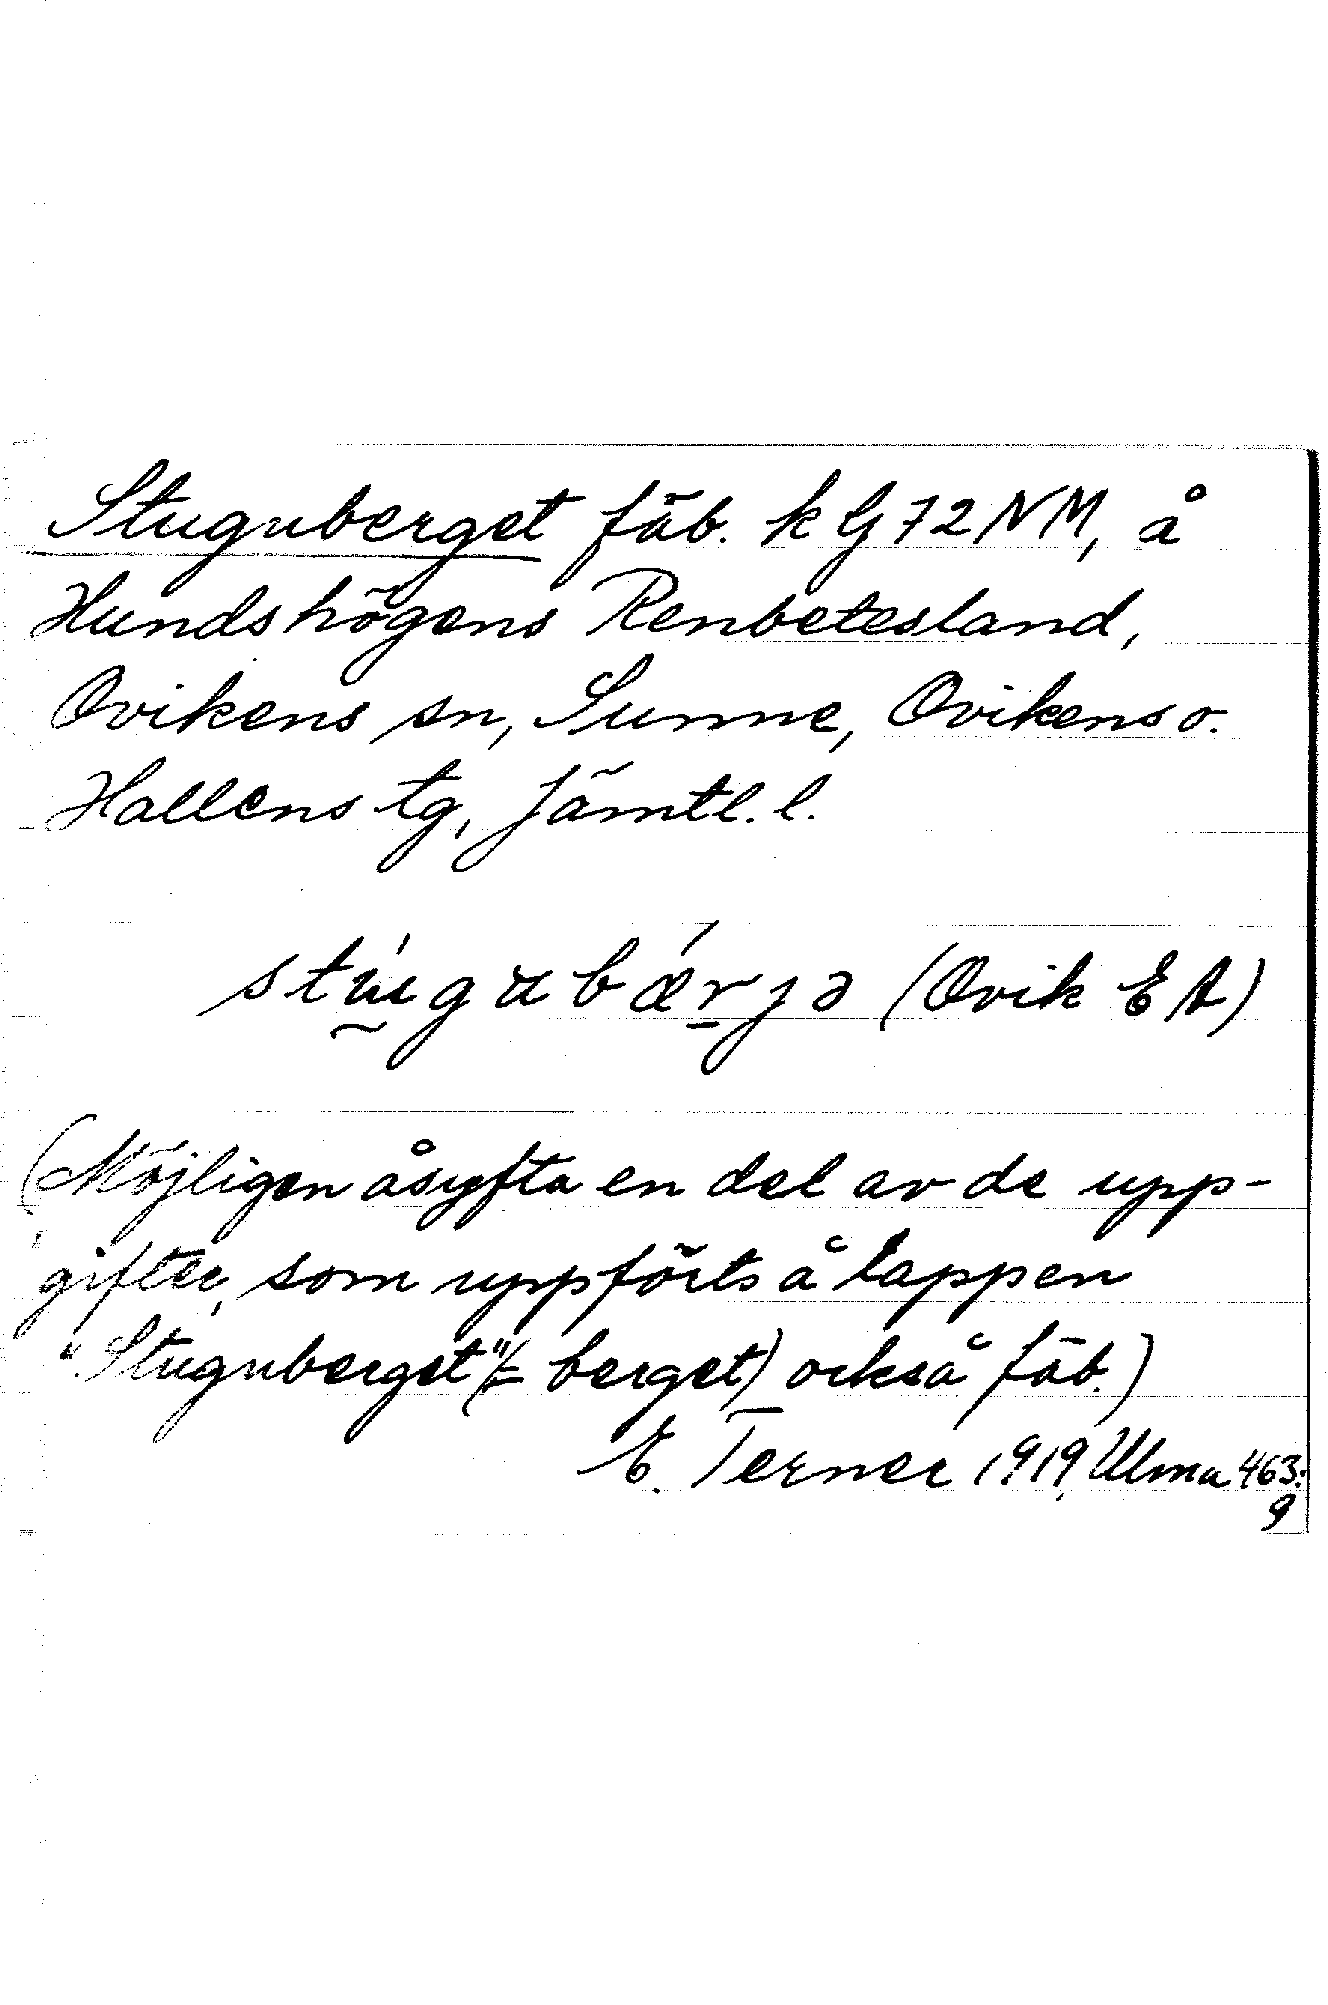 Stuguberget fäb. k G 72 NM, å
Hundshögens Renbetesland,
Ovikens sn, Sunne, Ovikens o.
Hallens tg, Jämtl. l.
stúgubǽrjə (Ovik EA)
(Möjligen åsyfta en del av de upp-
gifter, som uppförts å lappen
"Stuguberget" (= berget) också fäb.)
E. Terner 1919, Ulma 463:
9